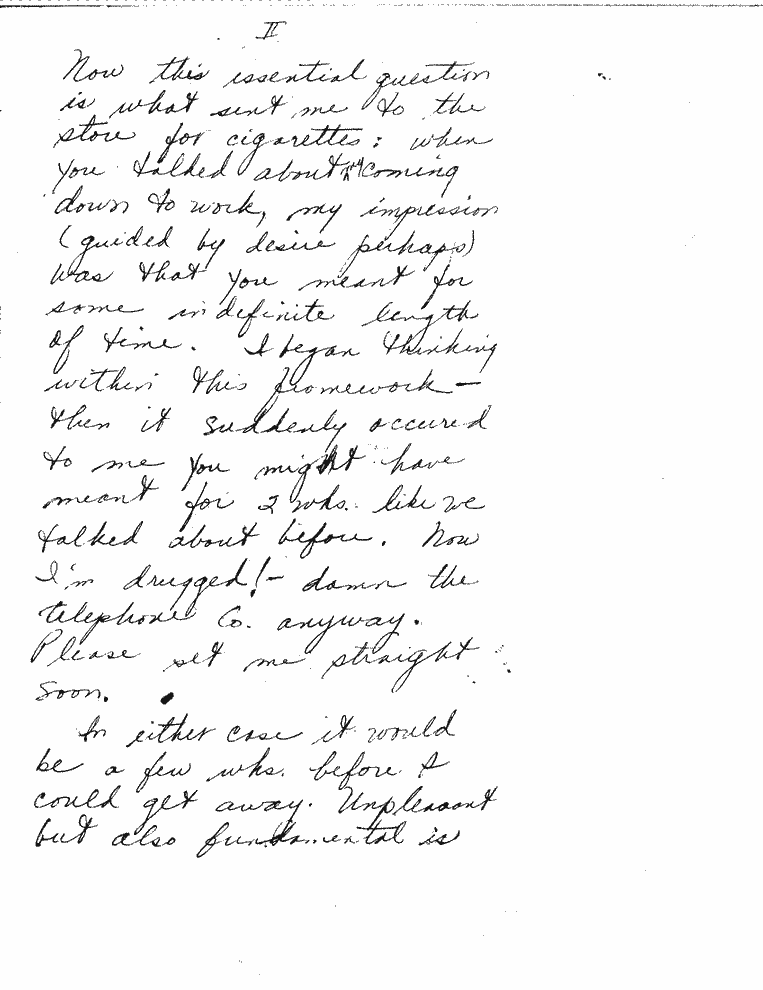 II
Now this essential question
is what sent me to the
store for cigarettes: when
you talked about my coming
down to work, my impression
(guided by desire perhaps)
was that you meant for
some indefinite length
of time. I began thinking
within this framework —
then it suddenly occured
to me you might have
meant for 2 wks. like we
talked about before. Now
I'm drugged! - damn the
telephone Co. anyway.
Please set me straight
soon.
In either case it would
be a few wks. before I
could get away. Unpleasant
but also fundamental is